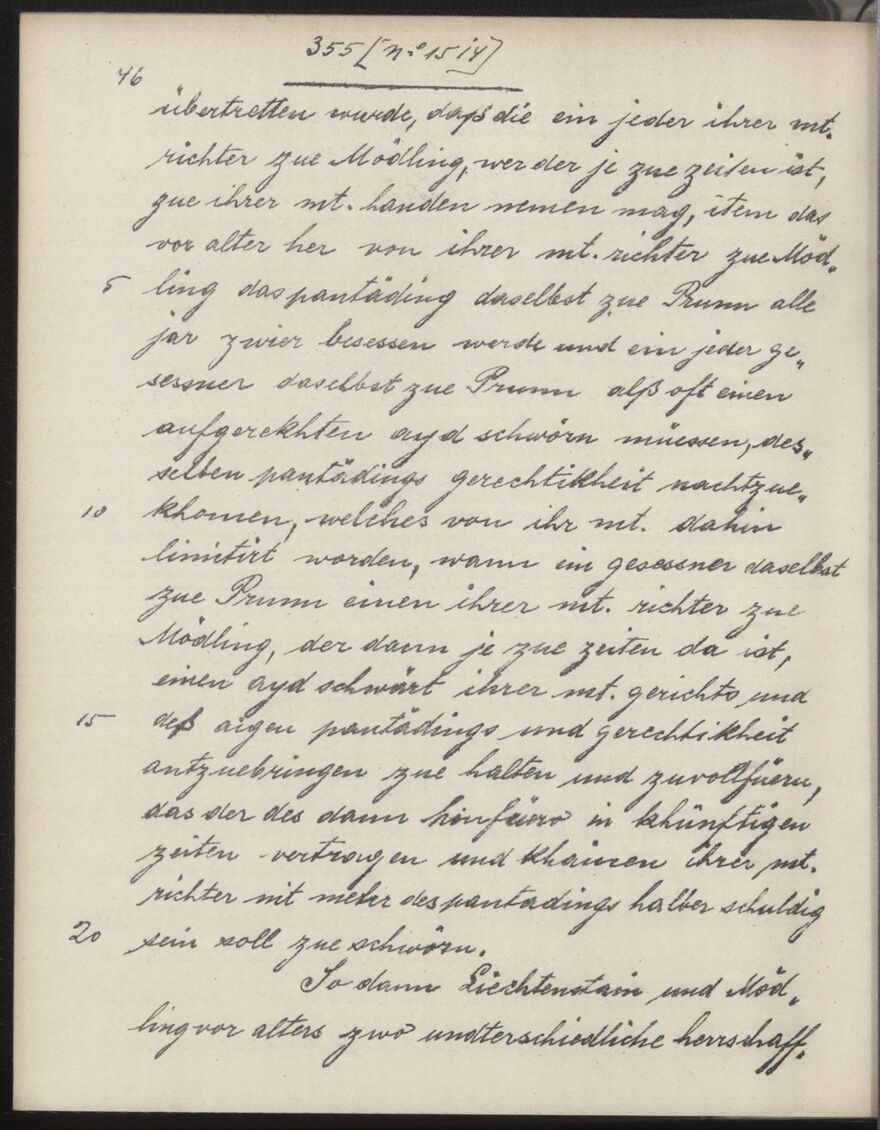 355 [nº 15 i4]
46
übertretten wurde, daß die ein jeder ihrer mt.
richter zue Mödling, wer der je zue zeiten ist,
zue ihrer mt. handen nemen mag, item das
vor alter her von ihrer mt. richter zue Möd„
5 ling das pantäding daselbst zue Prunn alle
jar zwier besessen werde und ein jeder ge„
sessner daselbst zue Prunn alß oft einen
aufgerekhten ayd schwörn müessen, des„
selben pantädings gerechtikheit nachtzue„
10 khomen, welches von ihr mt. dahin
limitirt worden, wann ein gesessner daselbst
zue Prunn einen ihrer mt. richter zue
Mödling, der dann je zue zeiten da ist,
einen ayd schwärt ihrer mt. gerichts und
15 deß aigen pantädings und gerechtikheit
antzuebringen zue halten und zuvollfüern,
das der des dann hinfüro in khünftigen
zeiten vertragen und khainen ihrer mt.
richter nit mehr des pantadings halber schuldig
20 sein soll zue schwörn.
So dann Liechtenstain und Möd„
ling vor alters zwo undterschiedliche herrschaff„